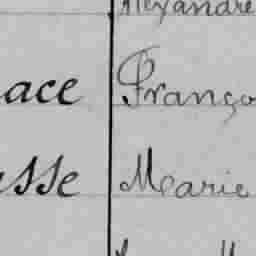 Alexandre
ace Franço
sse Marie